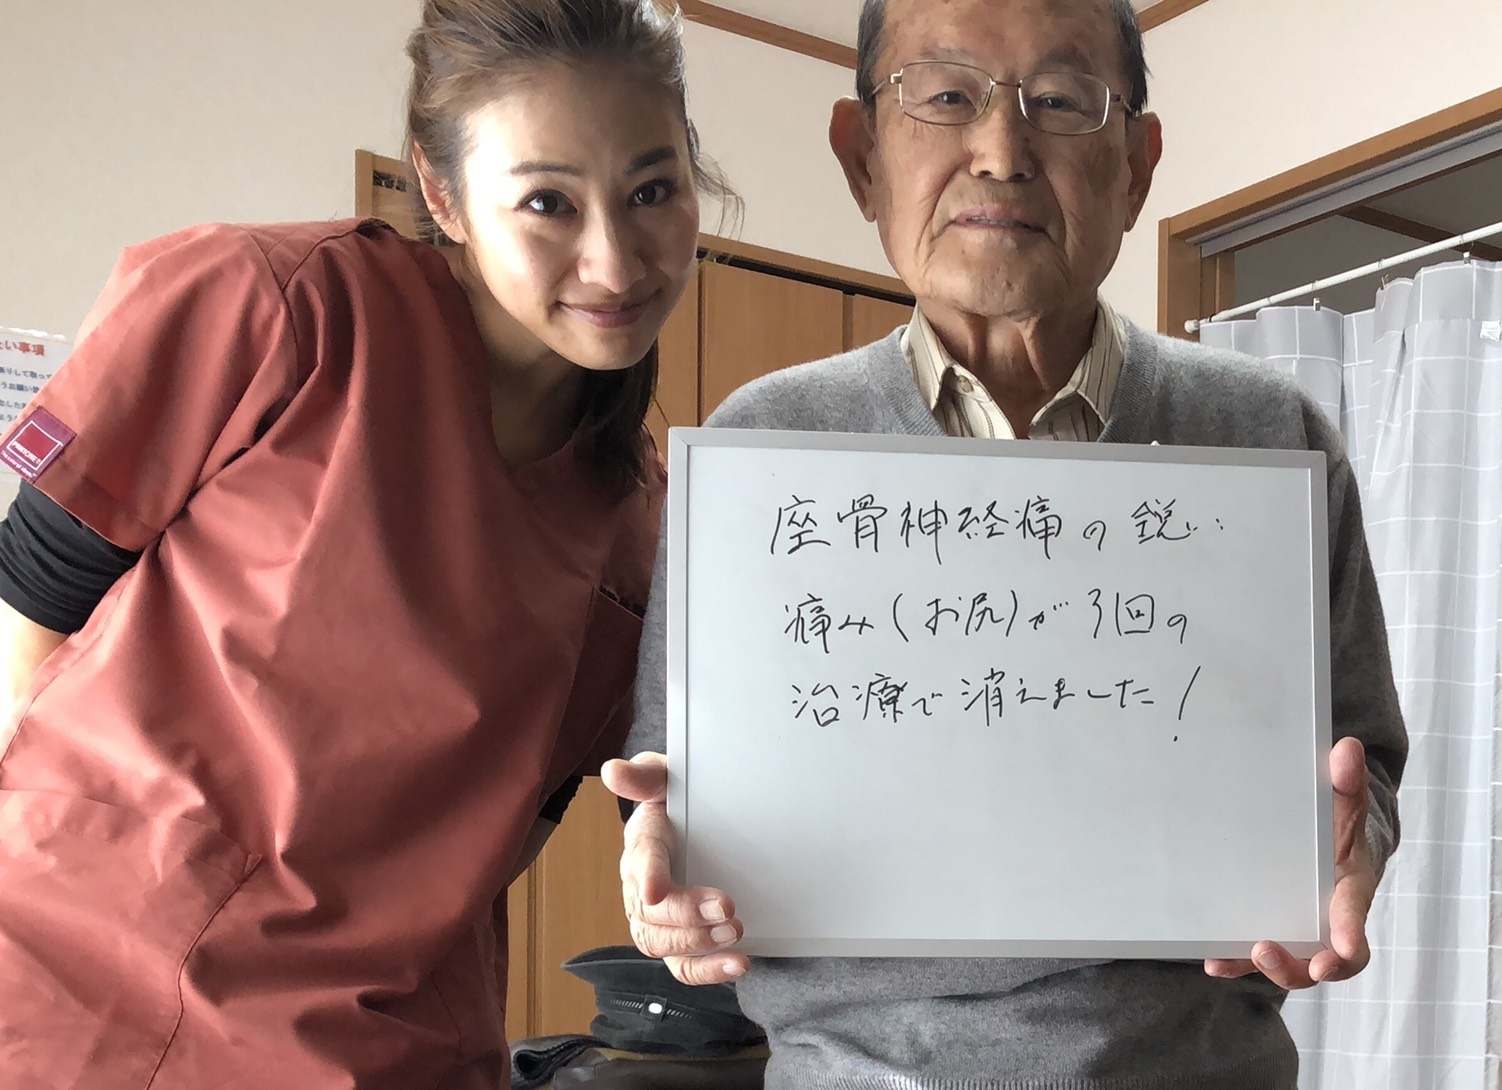 座骨神経痛の鋭い
痛み(お尻)が3回の
治療で消えました!
たい事項
PANTONE